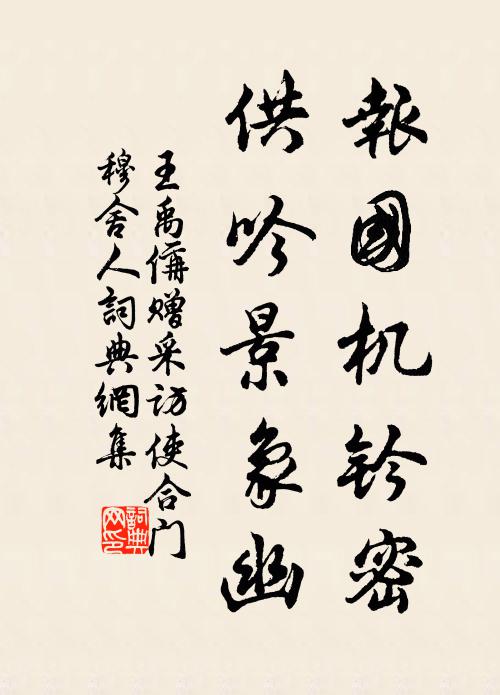 報國机鈐密
供吟景象幽
王禹偁贈采访使合门
穆舍人詞典網集
詞典网印